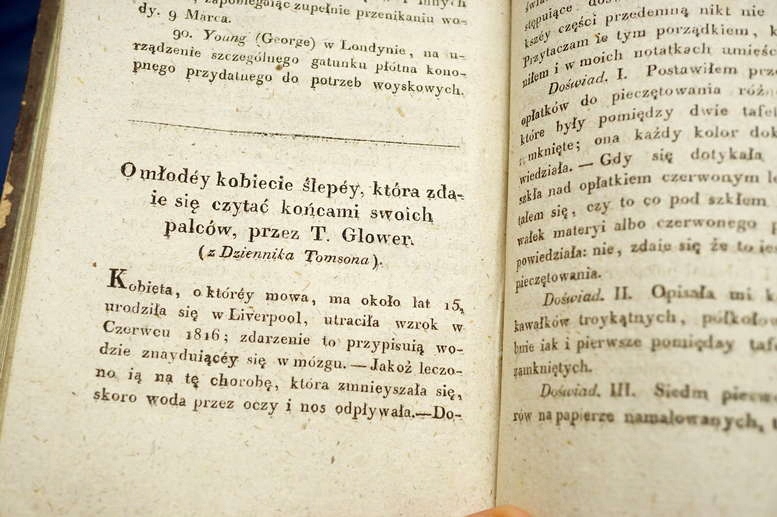 zapobiegaiąc zupełnie przenikaniu wo-
dy. 9 Marca.
90. Young (George) w Londynie, na u-
rządzenie szczególnego gatunku płótna kono-
pnego przydatnego do potrzeb woyskowych.
O młodéy kobiecie ślepéy, która zda-
ie się czytać końcami swoich
palców, przez T. Glower.
(z Dziennika Tomsona).
Kobieta, o któréy mowa, ma około lat 15,
urodziła się w Liverpool, utraciła wzrok w
Czerwcu 1816; zdarzenie to przypisuią wo-
dzie znayduiącéy się w mózgu. — Jakoż leczo-
no ią na tę chorobę, która zmnieyszała się,
skoro woda przez oczy i nos odpływała.—Do-
kszéy części przedemną nikt nie
Przytaczam ie tym porządkiem,
niłem i w moich notatkach umieśc
Doświad. I. Postawiłem prze
opłatków do pieczętowania różn
które były pomiędzy dwie tafe
zamknięte; ona każdy kolor dok
wiedziała. — Gdy się dotykała
szkła nad opłatkiem czerwonym le
tałem się, czy to co pod szkłem
wałek materyi albo czerwonego p
powiedziała: nie, zdaie się że to ies
pieczętowania.
Doświad. II. Opisała mi k
kawałków troykątnych, półkoło
bnie iak i pierwsze pomiędzy taf
zamkniętych.
Doświad. III. Siedm pierw
rów na papierze namalowanych,